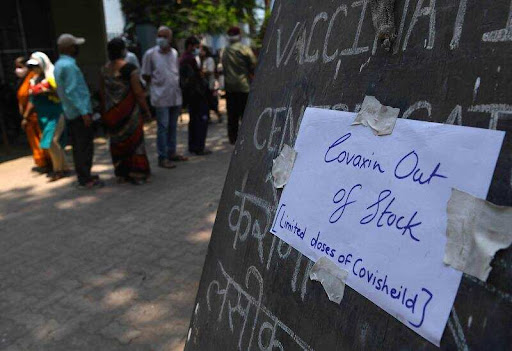 VACCINATI
Covaxin Out
of Stock
[Limited doses of Covisheild]
लसीक